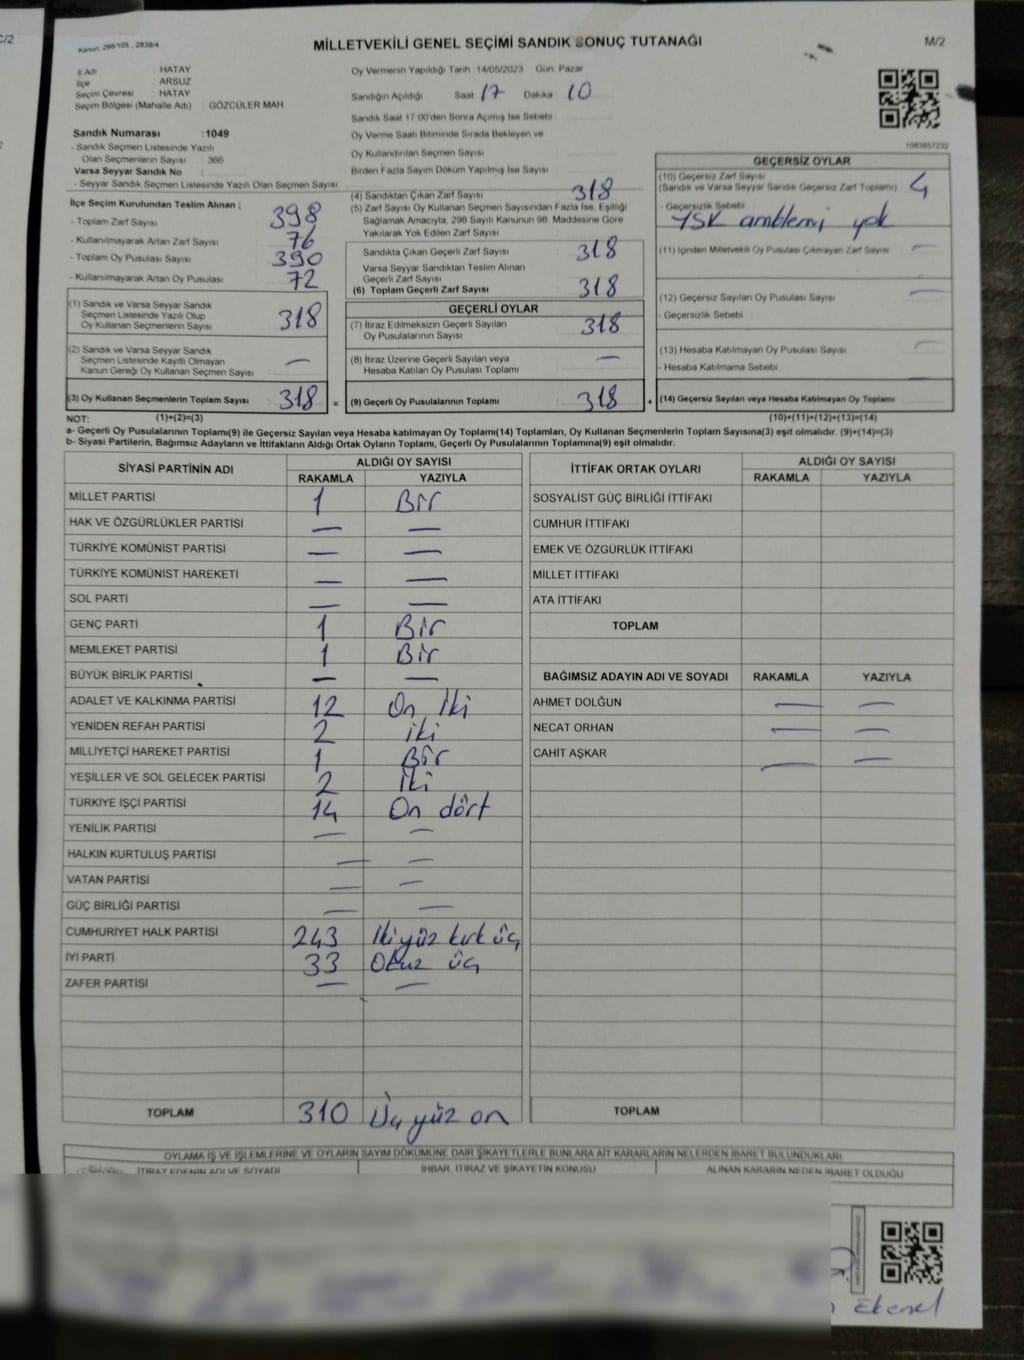 C/2
Kanun: 298/105 , 2839/4
MİLLETVEKİLİ GENEL SEÇİMİ SANDIK SONUÇ TUTANAĞI
M/2
İl Adı : HATAY
İlçe : ARSUZ
Seçim Çevresi : HATAY
Seçim Bölgesi (Mahalle Adı) : GÖZCÜLER MAH
Sandık Numarası :1049
- Sandık Seçmen Listesinde Yazılı
Olan Seçmenlerin Sayısı : 366
Varsa Seyyar Sandık No :
- Seyyar Sandık Seçmen Listesinde Yazılı Olan Seçmen Sayısı
Oy Vermenin Yapıldığı Tarih :14/05/2023 Gün: Pazar
Sandığın Açıldığı Saat 17 Dakika 10
Sandık Saat 17:00'den Sonra Açılmış İse Sebebi
Oy Verme Saati Bitiminde Sırada Bekleyen ve
Oy Kullandırılan Seçmen Sayısı
Birden Fazla Sayım Döküm Yapılmış İse Sayısı
1083857232
İlçe Seçim Kurulundan Teslim Alınan :
- Toplam Zarf Sayısı 398
- Kullanılmayarak Artan Zarf Sayısı 76
- Toplam Oy Pusulası Sayısı 390
- Kullanılmayarak Artan Oy Pusulası 72
(1) Sandık ve Varsa Seyyar Sandık
Seçmen Listesinde Yazılı Olup
Oy Kullanan Seçmenlerin Sayısı 318
(2) Sandık ve Varsa Seyyar Sandık
Seçmen Listesinde Kayıtlı Olmayan
Kanun Gereği Oy Kullanan Seçmen Sayısı —
(3) Oy Kullanan Seçmenlerin Toplam Sayısı 318 =
(4) Sandıktan Çıkan Zarf Sayısı 318
(5) Zarf Sayısı Oy Kullanan Seçmen Sayısından Fazla İse, Eşitliği
Sağlamak Amacıyla, 298 Sayılı Kanunun 98. Maddesine Göre
Yakılarak Yok Edilen Zarf Sayısı
Sandıkta Çıkan Geçerli Zarf Sayısı 318
Varsa Seyyar Sandıktan Teslim Alınan
Geçerli Zarf Sayısı
(6) Toplam Geçerli Zarf Sayısı 318
GEÇERLİ OYLAR
(7) İtiraz Edilmeksizin Geçerli Sayılan
Oy Pusulalarının Sayısı 318
(8) İtiraz Üzerine Geçerli Sayılan veya
Hesaba Katılan Oy Pusulası Toplamı —
(9) Geçerli Oy Pusulalarının Toplamı 318 +
GEÇERSİZ OYLAR
(10) Geçersiz Zarf Sayısı
(Sandık ve Varsa Seyyar Sandık Geçersiz Zarf Toplamı) 4
- Geçersizlik Sebebi
YSK amblemi yok
(11) İçinden Milletvekili Oy Pusulası Çıkmayan Zarf Sayısı —
(12) Geçersiz Sayılan Oy Pusulası Sayısı —
- Geçersizlik Sebebi
(13) Hesaba Katılmayan Oy Pusulası Sayısı —
- Hesaba Katılmama Sebebi —
(14) Geçersiz Sayılan veya Hesaba Katılmayan Oy Toplamı
NOT: (1)+(2)=(3) (10)+(11)+(12)+(13)=(14)
a- Geçerli Oy Pusulalarının Toplamı(9) ile Geçersiz Sayılan veya Hesaba katılmayan Oy Toplamı(14) Toplamları, Oy Kullanan Seçmenlerin Toplam Sayısına(3) eşit olmalıdır. (9)+(14)=(3)
b- Siyasi Partilerin, Bağımsız Adayların ve İttifakların Aldığı Ortak Oyların Toplamı, Geçerli Oy Pusulalarının Toplamına(9) eşit olmalıdır.
SİYASİ PARTİNİN ADI ALDIĞI OY SAYISI
RAKAMLA YAZIYLA
MİLLET PARTİSİ 1 Bir
HAK VE ÖZGÜRLÜKLER PARTİSİ — —
TÜRKİYE KOMÜNİST PARTİSİ — —
TÜRKİYE KOMÜNİST HAREKETİ — —
SOL PARTİ — —
GENÇ PARTİ 1 Bir
MEMLEKET PARTİSİ 1 Bir
BÜYÜK BİRLİK PARTİSİ — —
ADALET VE KALKINMA PARTİSİ 12 On İki
YENİDEN REFAH PARTİSİ 2 iki
MİLLİYETÇİ HAREKET PARTİSİ 1 Bir
YEŞİLLER VE SOL GELECEK PARTİSİ 2 İki
TÜRKİYE İŞÇİ PARTİSİ 14 On dört
YENİLİK PARTİSİ — —
HALKIN KURTULUŞ PARTİSİ — —
VATAN PARTİSİ — —
GÜÇ BİRLİĞİ PARTİSİ — —
CUMHURİYET HALK PARTİSİ 243 İkiyüz kırk üç
İYİ PARTİ 33 Otuz üç
ZAFER PARTİSİ — —
TOPLAM 310 Üç yüz on
İTTİFAK ORTAK OYLARI ALDIĞI OY SAYISI
RAKAMLA YAZIYLA
SOSYALİST GÜÇ BİRLİĞİ İTTİFAKI
CUMHUR İTTİFAKI
EMEK VE ÖZGÜRLÜK İTTİFAKI
MİLLET İTTİFAKI
ATA İTTİFAKI
TOPLAM
BAĞIMSIZ ADAYIN ADI VE SOYADI RAKAMLA YAZIYLA
AHMET DOLĞUN — —
NECAT ORHAN — —
CAHİT AŞKAR — —
TOPLAM
OYLAMA İŞ VE İŞLEMLERİNE VE OYLARIN SAYIM DÖKÜMÜNE DAİR ŞİKAYETLERLE BUNLARA AİT KARARLARIN NELERDEN İBARET BULUNDUKLARI
İTİRAZ EDENİN ADI VE SOYADI İHBAR, İTİRAZ VE ŞİKAYETİN KONUSU ALINAN KARARIN NEDEN İBARET OLDUĞU